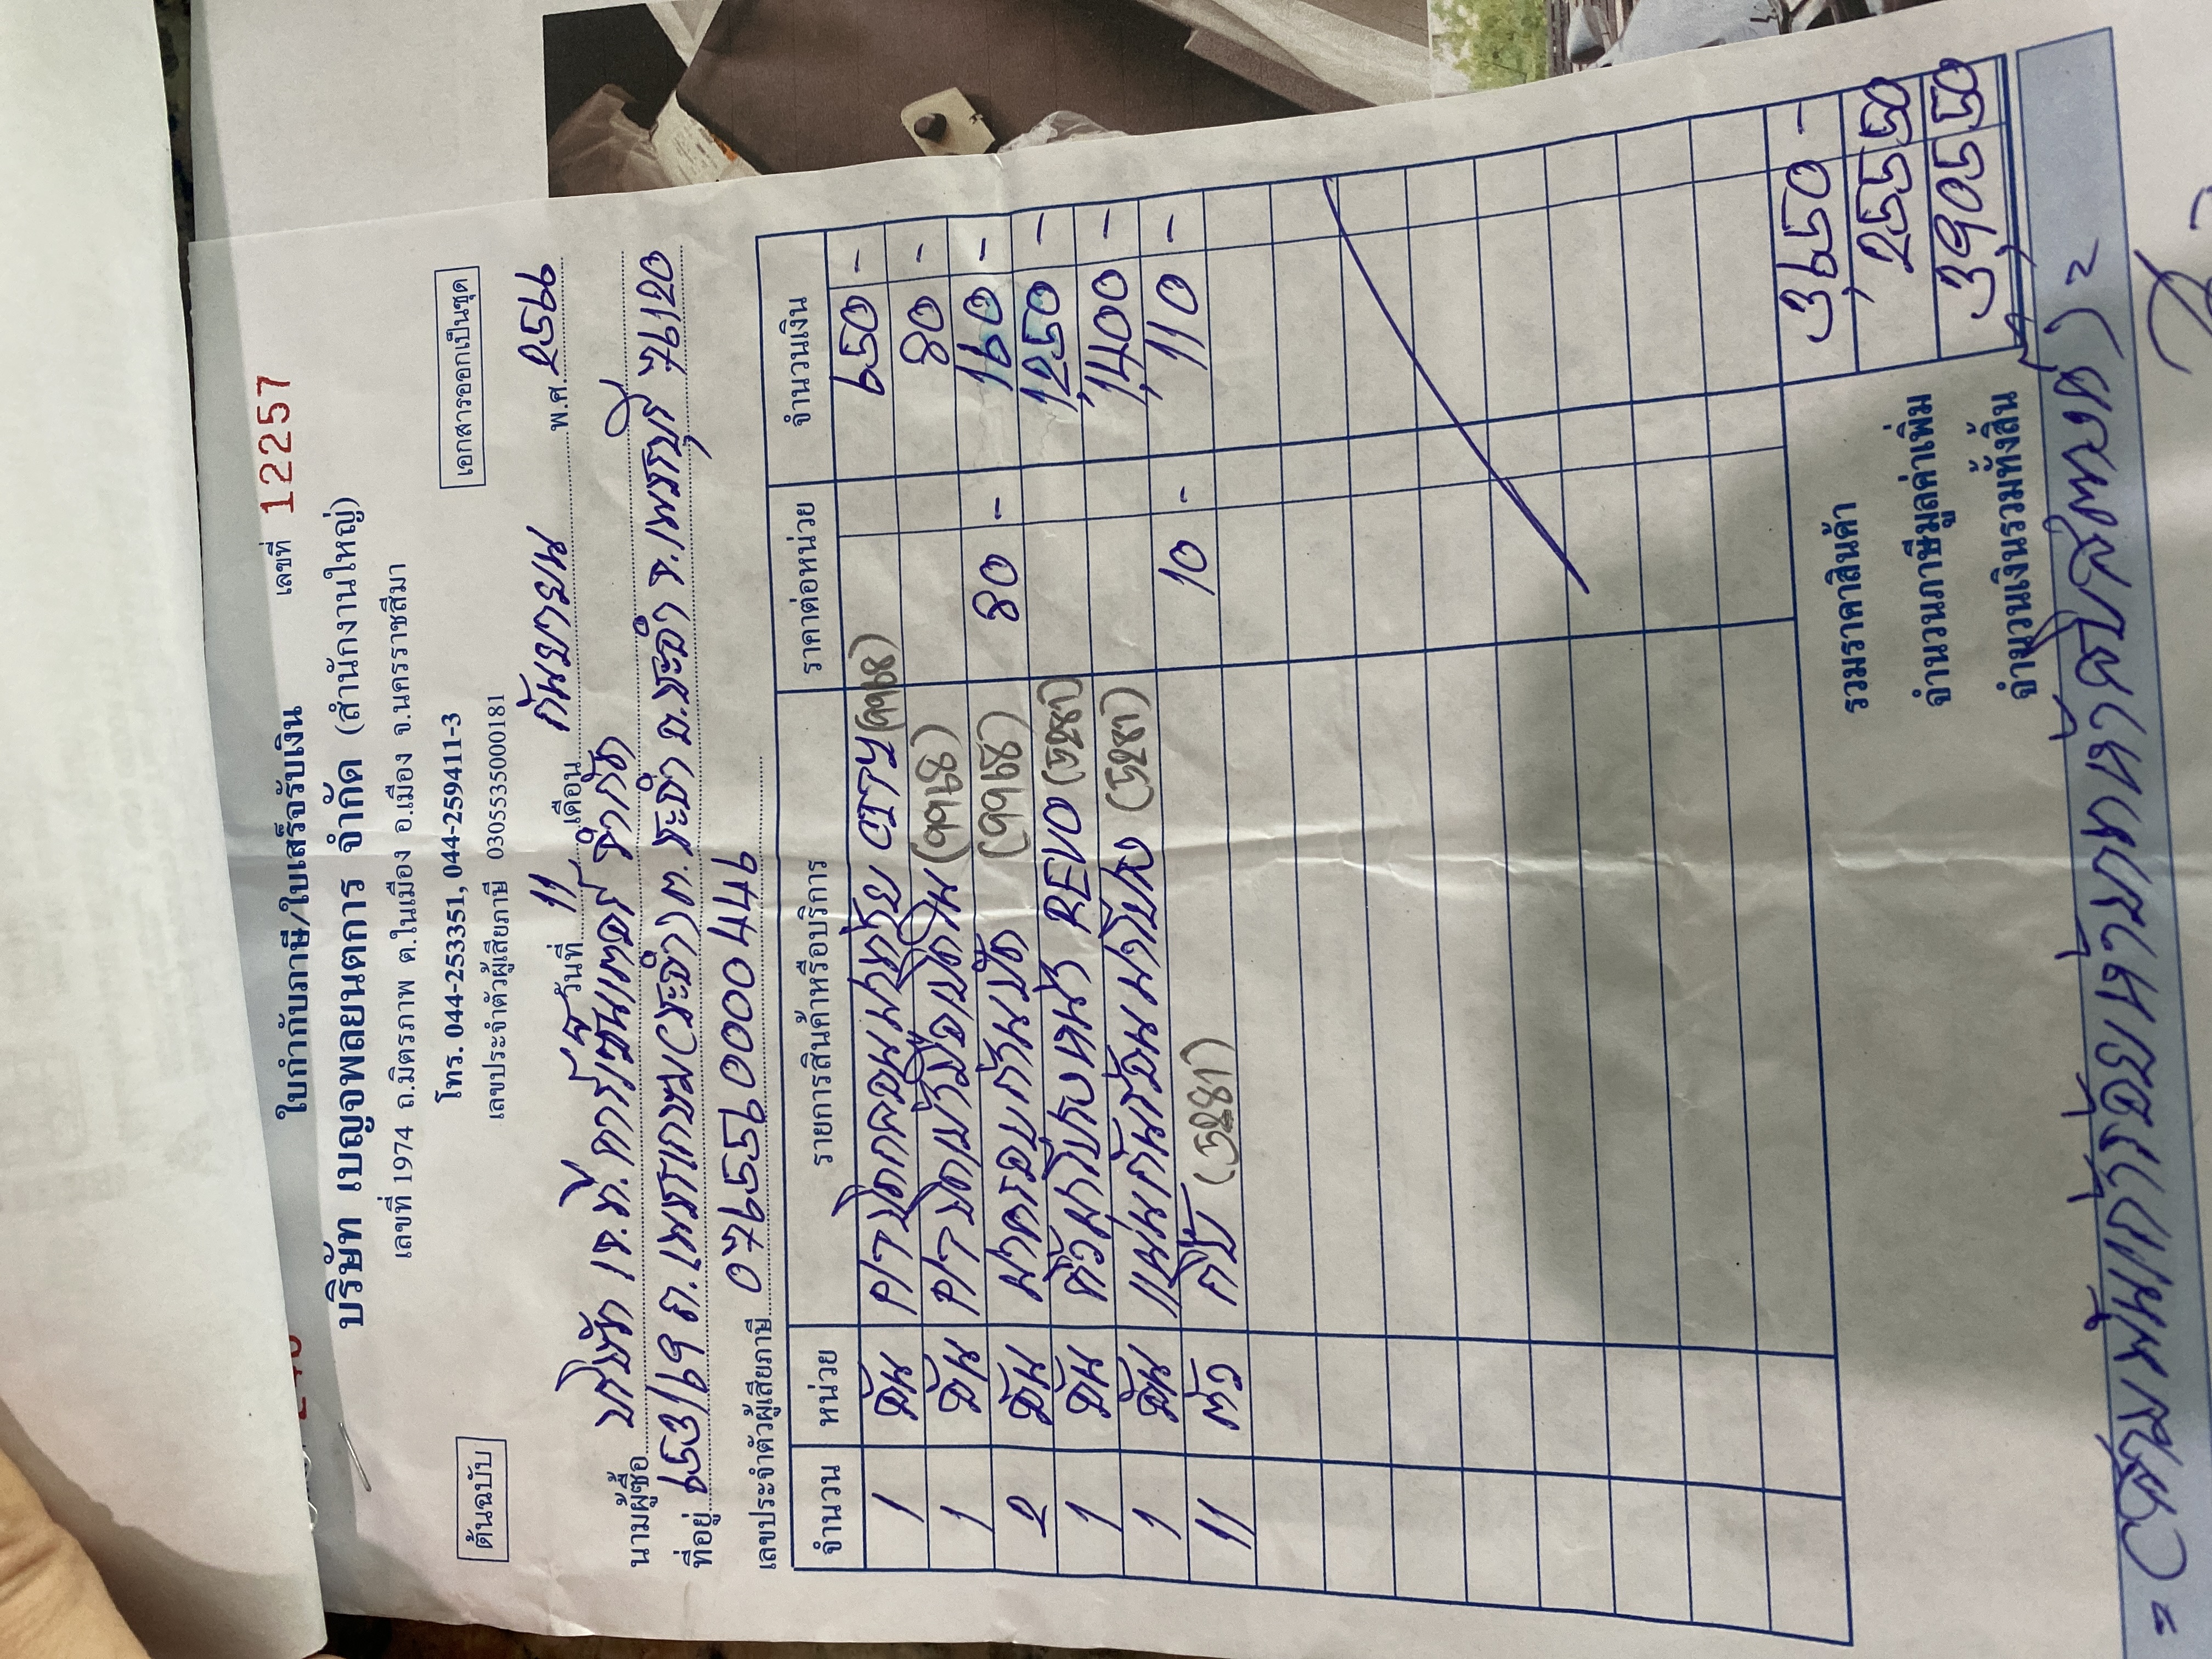 ใบกำกับภาษี/ใบเสร็จรับเงิน เลขที่ 12257
บริษัท เบญจพลยนตการ จำกัด (สำนักงานใหญ่)
เลขที่ 1974 ถ.มิตรภาพ ต.ในเมือง อ.เมือง จ.นครราชสีมา
โทร. 044-253351, 044-259411-3
ต้นฉบับ เลขประจำตัวผู้เสียภาษี 0305535000181 เอกสารออกเป็นชุด
วันที่ 11 เดือน กันยายน พ.ศ. 2566
นามผู้ซื้อ บริษัท เจ.ที. คาร์เซ็นเตอร์ จำกัด
ที่อยู่ 653/69 ถ.เพชรเกษม(ชะอำ) ต.ชะอำ อ.ชะอำ จ.เพชรบุรี 76120
เลขประจำตัวผู้เสียภาษี 0765560004476
จำนวน หน่วย รายการสินค้าหรือบริการ ราคาต่อหน่วย จำนวนเงิน
1 อัน CITY (9968) 650 -
1 อัน (9968) 80 -
2 อัน (9968) 80 - 160 -
1 อัน REVO (5281) 1,250 -
1 อัน (5281) 1,400 -
11 ตัว กิ๊บ (5281) 10 - 110 -
รวมราคาสินค้า 3,650 -
จำนวนภาษีมูลค่าเพิ่ม 255 50
จำนวนเงินรวมทั้งสิ้น 3,905 50
= (สามพันเก้าร้อยห้าบาทห้าสิบสตางค์) =